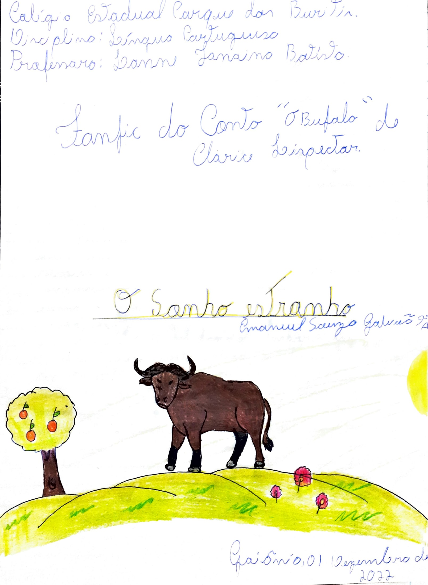 Colégio Estadual Parque dos Buritis.
Disciplina: Língua Portuguesa
Professora: Batista
Fanfic do Conto "O Búfalo" de
Clarice Lispector.
O Sonho estranho
Emanuel Souza Galvão 9º A
Goiânia, 01 Dezembro de
2022